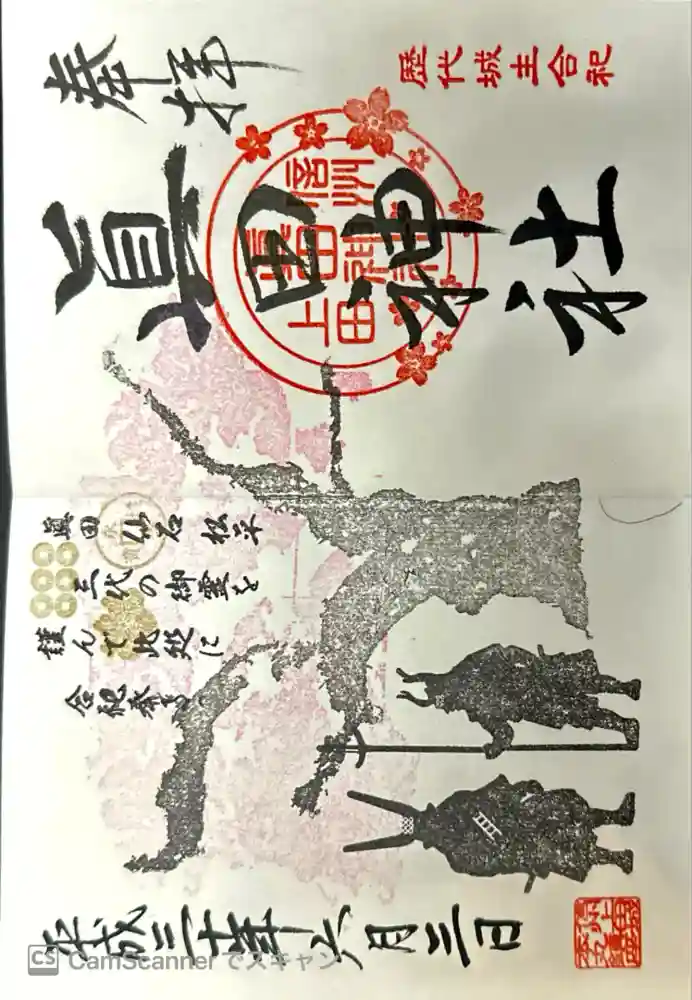 歴代城主合祀
奉拝
眞田神社
信州上田
眞田神社
眞田 仙石 松平
三代の御霊を
謹んで此処に
合祀奉る
平成三十年六月三日
CS CamScanner でスキャン